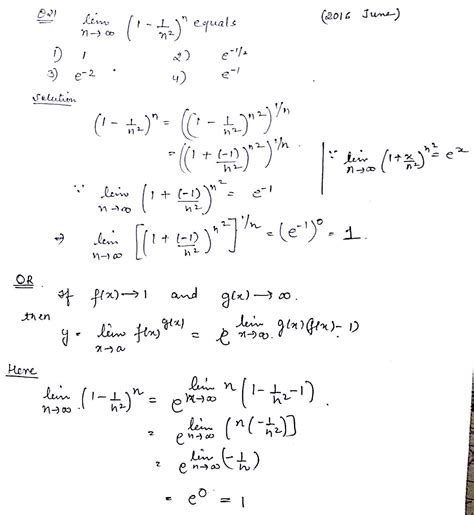 Q21 lim n→∞ (1 - 1/n²)ⁿ equals (2016 June)
1) 1 2) e^-1/2
3) e^-2 4) e^-1
Solution
(1 - 1/n²)ⁿ = ((1 - 1/n²)^n²)^1/n
= ((1 + (-1)/n²)^n²)^1/n | ∵ lim n→∞ (1 + x/n²)^n² = e^x
∵ lim n→∞ (1 + (-1)/n²)^n² = e^-1
⇒ lim n→∞ [(1 + (-1)/n²)^n²]^1/n = (e^-1)^0 = 1.
OR
If f(x) → 1 and g(x) → ∞.
then
y = lim x→a f(x)^g(x) = e^lim n→∞ g(x)(f(x) - 1)
Here
lim n→∞ (1 - 1/n²)ⁿ = e^lim n→∞ n(1 - 1/n² - 1).
= e^lim n→∞ (n(-1/n²)]
= e^lim n→∞ (-1/n)
= e^0 = 1